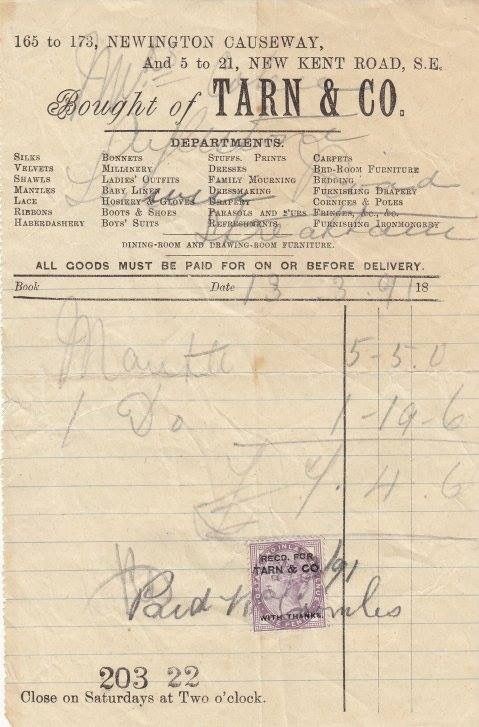 165 to 173, NEWINGTON CAUSEWAY,
And 5 to 21, NEW KENT ROAD, S.E.
Bought of TARN & CO.
DEPARTMENTS.
SILKS BONNETS STUFFS. PRINTS CARPETS
VELVETS MILLINERY DRESSES BED-ROOM FURNITURE
SHAWLS LADIES' OUTFITS FAMILY MOURNING BEDDING
MANTLES BABY LINEN DRESSMAKING FURNISHING DRAPERY
LACE HOSIERY & GLOVES DRAPERY CORNICES & POLES
RIBBONS BOOTS & SHOES PARASOLS AND FURS FRINGES, &c., &c.
HABERDASHERY BOYS' SUITS REFRESHMENTS FURNISHING IRONMONGERY
Streatham
DINING-ROOM AND DRAWING-ROOM FURNITURE.
ALL GOODS MUST BE PAID FOR ON OR BEFORE DELIVERY.
Book Date 13 3 91 18
Mantle 5-5.0
1 Do 1-19-6
£ 7.4.6
RECD. FOR
TARN & CO
WITH THANKS
/91
203 22
Close on Saturdays at Two o'clock.